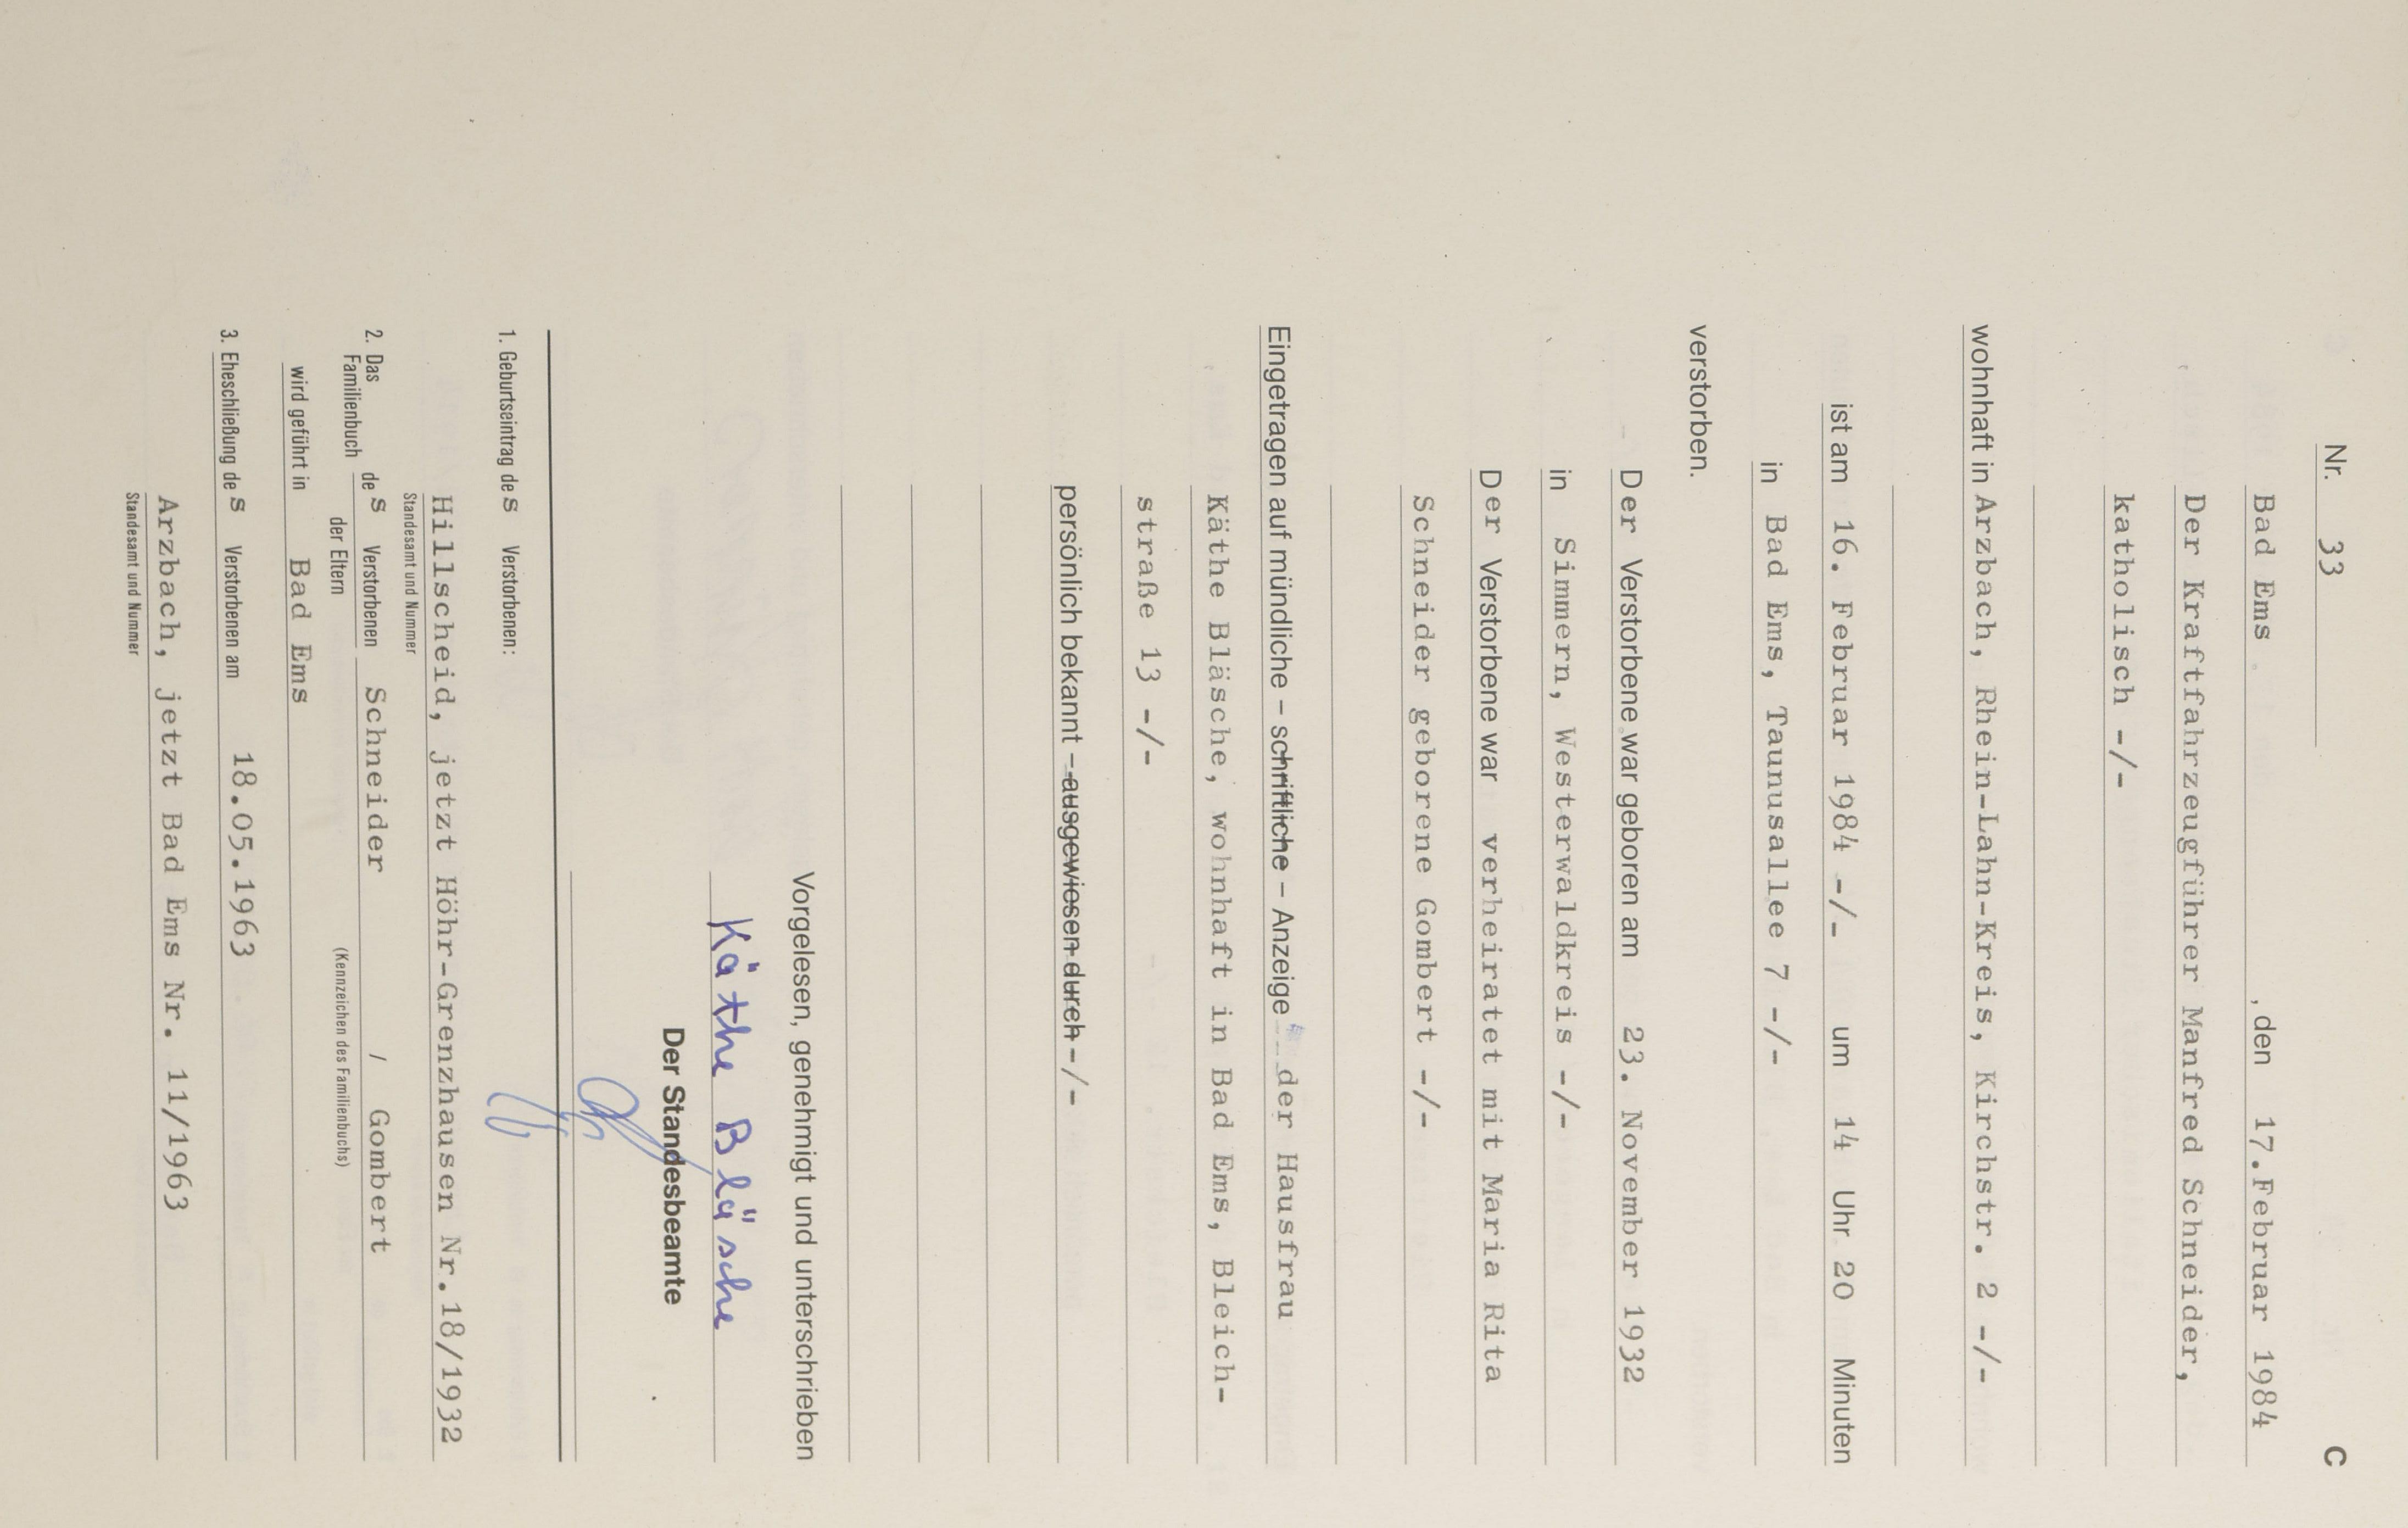 C
Nr. 33
Bad Ems , den 17.Februar 1984
Der Kraftfahrzeugführer Manfred Schneider,
katholisch -/-
wohnhaft in Arzbach, Rhein-Lahn-Kreis, Kirchstr. 2 -/-
ist am 16. Februar 1984 -/- um 14 Uhr 20 Minuten
in Bad Ems, Taunusallee 7 -/-
verstorben.
Der Verstorbene war geboren am 23. November 1932
in Simmern, Westerwaldkreis -/-
Der Verstorbene war verheiratet mit Maria Rita
Schneider geborene Gombert -/-
Eingetragen auf mündliche – schriftliche – Anzeige der Hausfrau
Käthe Bläsche, wohnhaft in Bad Ems, Bleich-
straße 13 -/-
persönlich bekannt – ausgewiesen durch -/-
Vorgelesen, genehmigt und unterschrieben
Käthe Bläsche
Der Standesbeamte
1. Geburtseintrag des Verstorbenen:
Hillscheid, jetzt Höhr-Grenzhausen Nr.18/1932
Standesamt und Nummer
2. Das Familienbuch des Verstorbenen Schneider / Gombert
der Eltern (Kennzeichen des Familienbuchs)
wird geführt in Bad Ems
3. Eheschließung des Verstorbenen am 18.05.1963
Arzbach, jetzt Bad Ems Nr. 11/1963
Standesamt und Nummer